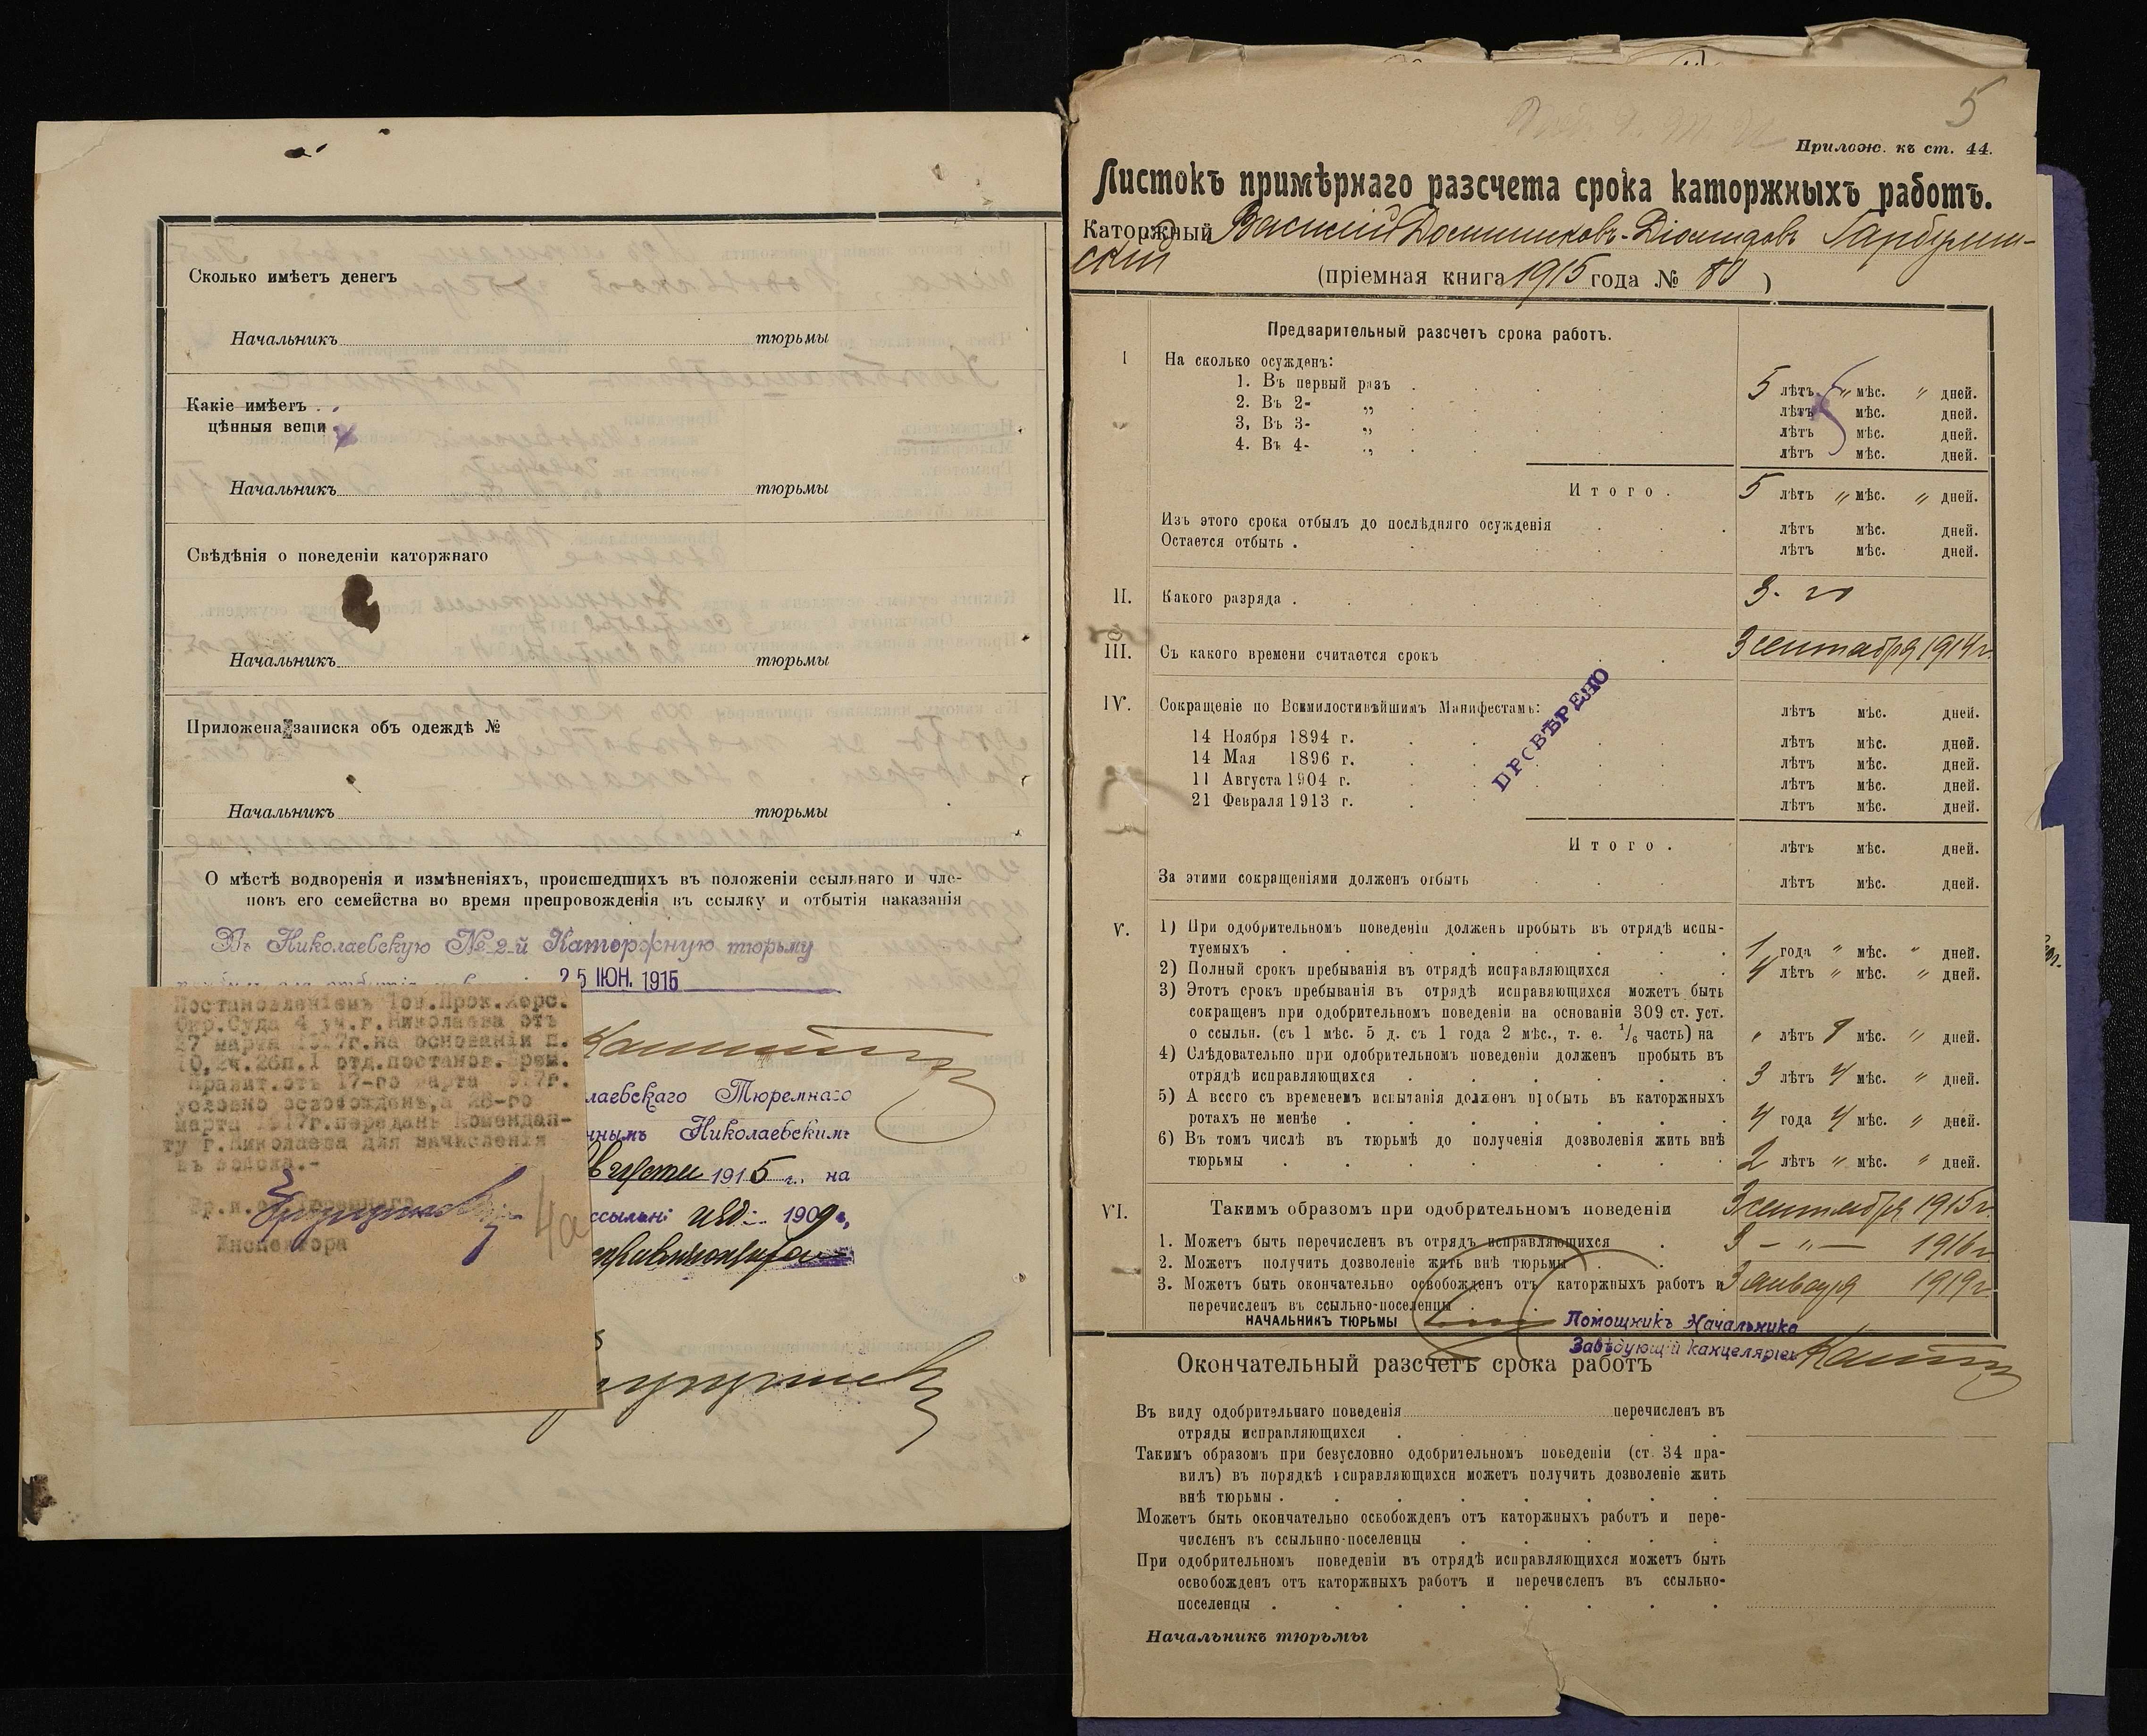 Сколько имѣетъ денегъ
Начальникъ тюрьмы
Какіе имѣетъ
цѣнныя вещи
Начальникъ тюрьмы
Свѣдѣнія о поведеніи каторжнаго
Начальникъ тюрьмы
Приложена записка объ одеждѣ №
Начальникъ тюрьмы
О мѣстѣ водворенія и измѣненіяхъ, происшедшихъ въ положеніи ссыльнаго и чле-
новъ его семейства во время препровожденія въ ссылку и отбытія наказанія
Въ Николаевскую № 2-й Каторжную тюрьму
25 ІЮН. 1915
Постановленіемъ Тов.Прок.Херс.
Окр.Суда 4 уч.г.Николаева отъ
27 марта 1917г.на основаніи п.
10,2ч.26п.1 отд.постанов.Врем.
Правит.отъ 17-го марта 1917г.
условно освобожденъ,а 28-го
марта 1917г.переданъ Комендан-
ту г.Николаева для зачисленія
въ войска.-
Вр.и.об.Тюремнаго
Инспектора
4а
лаевскаго Тюремнаго
ннымъ Николаевскимъ
августа 1915 г. на
ссыльн. изд. 1909 г.
5
Прилож. къ ст. 44.
Листокъ примѣрнаго разсчета срока каторжныхъ работъ.
Каторжный Василій Доминиковъ-Діомидовъ Гарбузин-
скій
(пріемная книга 1915 года № 80 )
Предварительный разсчетъ срока работъ.
I На сколько осужденъ:
1. Въ первый разъ 5 лѣтъ „ мѣс. „ дней.
2. Въ 2- „ лѣтъ мѣс. дней.
3. Въ 3- „ лѣтъ мѣс. дней.
4. Въ 4- „ лѣтъ мѣс. дней.
Итого. 5 лѣтъ „ мѣс. „ дней.
Изъ этого срока отбылъ до послѣдняго осужденія лѣтъ мѣс. дней.
Остается отбыть . лѣтъ мѣс. дней.
II. Какого разряда . 3-го
III. Съ какого времени считается срокъ 3 сентября 1914 г.
IV. Сокращеніе по Всемилостивѣйшимъ Манифестамъ: лѣтъ мѣс. дней.
14 Ноября 1894 г. лѣтъ мѣс. дней.
14 Мая 1896 г. лѣтъ мѣс. дней.
11 Августа 1904 г. лѣтъ мѣс. дней.
21 Февраля 1913 г. лѣтъ мѣс. дней.
ПРОВѢРЕНО
Итого. лѣтъ мѣс. дней.
За этими сокращеніями долженъ отбыть лѣтъ мѣс. дней.
V. 1) При одобрительномъ поведеніи долженъ пробыть въ отрядѣ испы-
туемыхъ 1 года „ мѣс. „ дней.
2) Полный срокъ пребыванія въ отрядѣ исправляющихся 4 лѣтъ „ мѣс. „ дней.
3) Этотъ срокъ пребыванія въ отрядѣ исправляющихся можетъ быть
сокращенъ при одобрительномъ поведеніи на основаніи 309 ст. уст.
о ссыльн. (съ 1 мѣс. 5 д. съ 1 года 2 мѣс., т. е. 1/6 часть) на „ лѣтъ 8 мѣс. „ дней.
4) Слѣдовательно при одобрительномъ поведеніи долженъ пробыть въ
отрядѣ исправляющихся 3 лѣтъ 4 мѣс. „ дней.
5) А всего съ временемъ испытанія долженъ пробыть въ каторжныхъ
ротахъ не менѣе 4 года 4 мѣс. „ дней.
6) Въ томъ числѣ въ тюрьмѣ до полученія дозволенія жить внѣ
тюрьмы 2 лѣтъ „ мѣс. „ дней.
VI. Такимъ образомъ при одобрительномъ поведеніи 3 сентября 1915 г.
1. Можетъ быть перечисленъ въ отрядъ исправляющихся 3 — „ — 1916 г.
2. Можетъ получить дозволеніе жить внѣ тюрьмы
3. Можетъ быть окончательно освобожденъ отъ каторжныхъ работъ и 3 января 1919 г.
перечисленъ въ ссыльно-поселенцы
НАЧАЛЬНИКЪ ТЮРЬМЫ Помощникъ Начальника
Завѣдующій канцеляріей
Окончательный разсчетъ срока работъ
Въ виду одобрительнаго поведенія перечисленъ въ
отряды исправляющихся
Такимъ образомъ при безусловно одобрительномъ поведеніи (ст. 34 пра-
вилъ) въ порядкѣ исправляющихся можетъ получить дозволеніе жить
внѣ тюрьмы .
Можетъ быть окончательно освобожденъ отъ каторжныхъ работъ и пере-
численъ въ ссыльно-поселенцы
При одобрительномъ поведеніи въ отрядѣ исправляющихся можетъ быть
освобожденъ отъ каторжныхъ работъ и перечисленъ въ ссыльно-
поселенцы .
Начальникъ тюрьмы